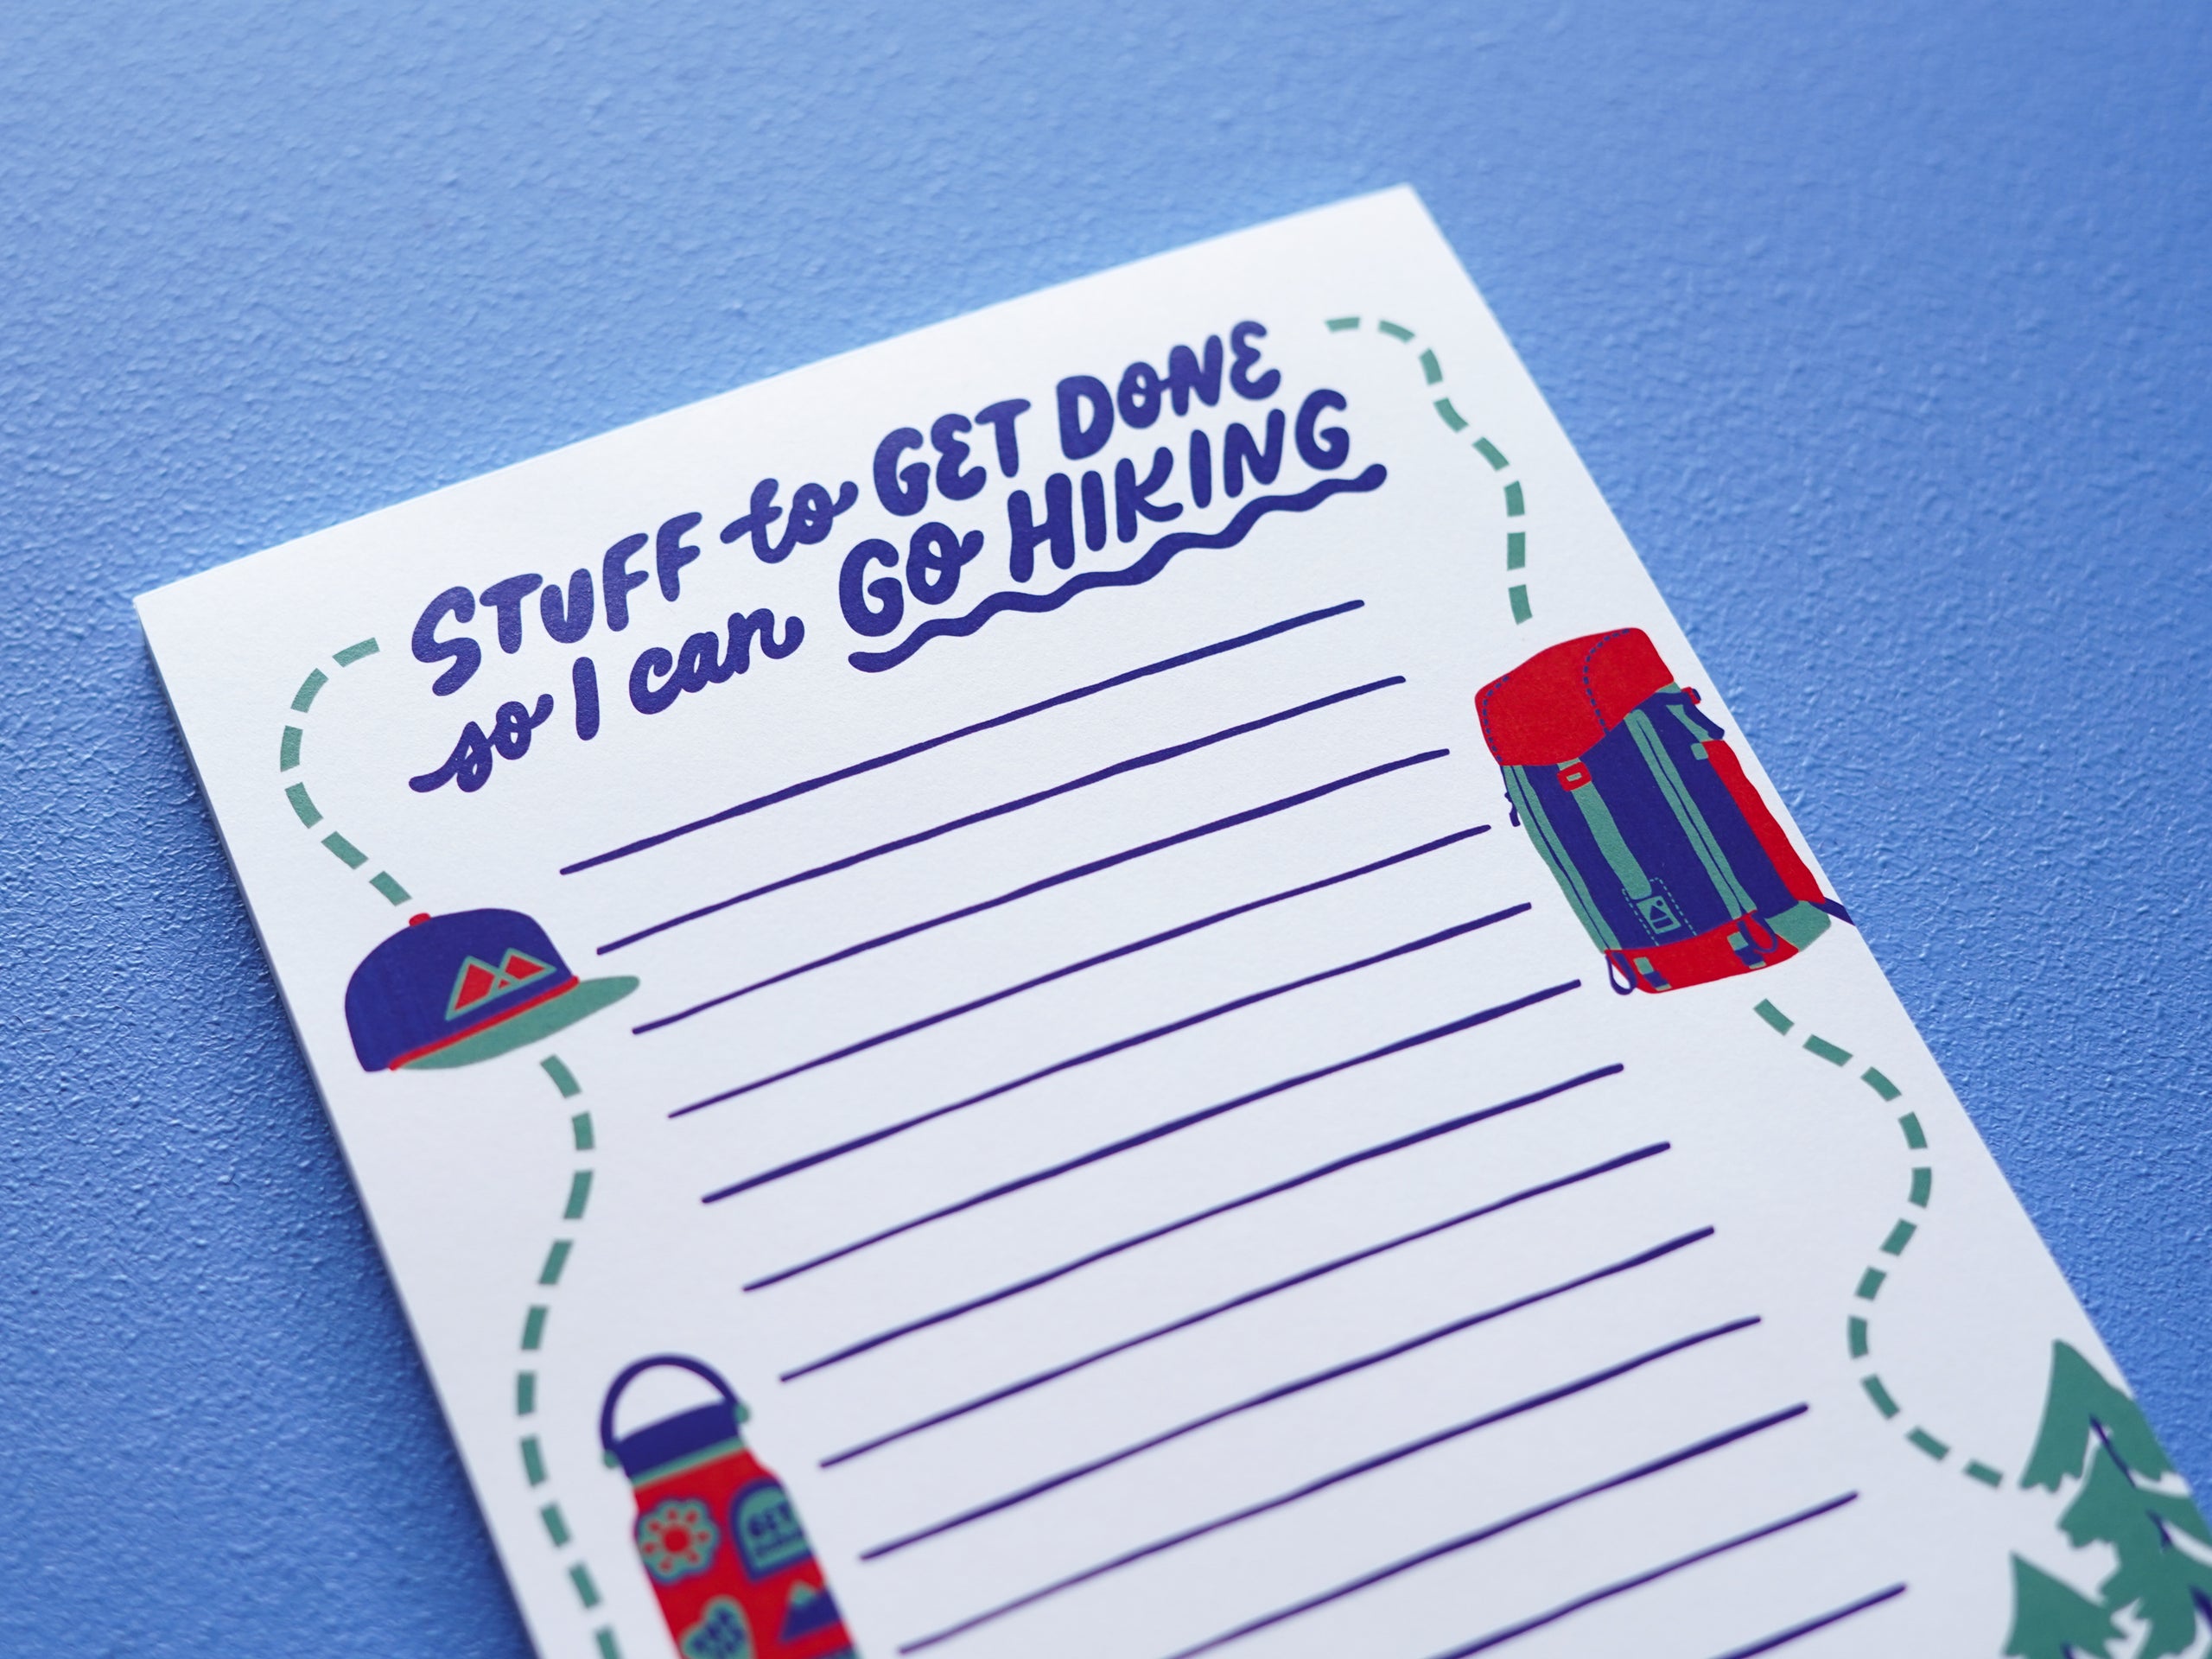 STUFF to GET DONE
so I can GO HIKING
GET